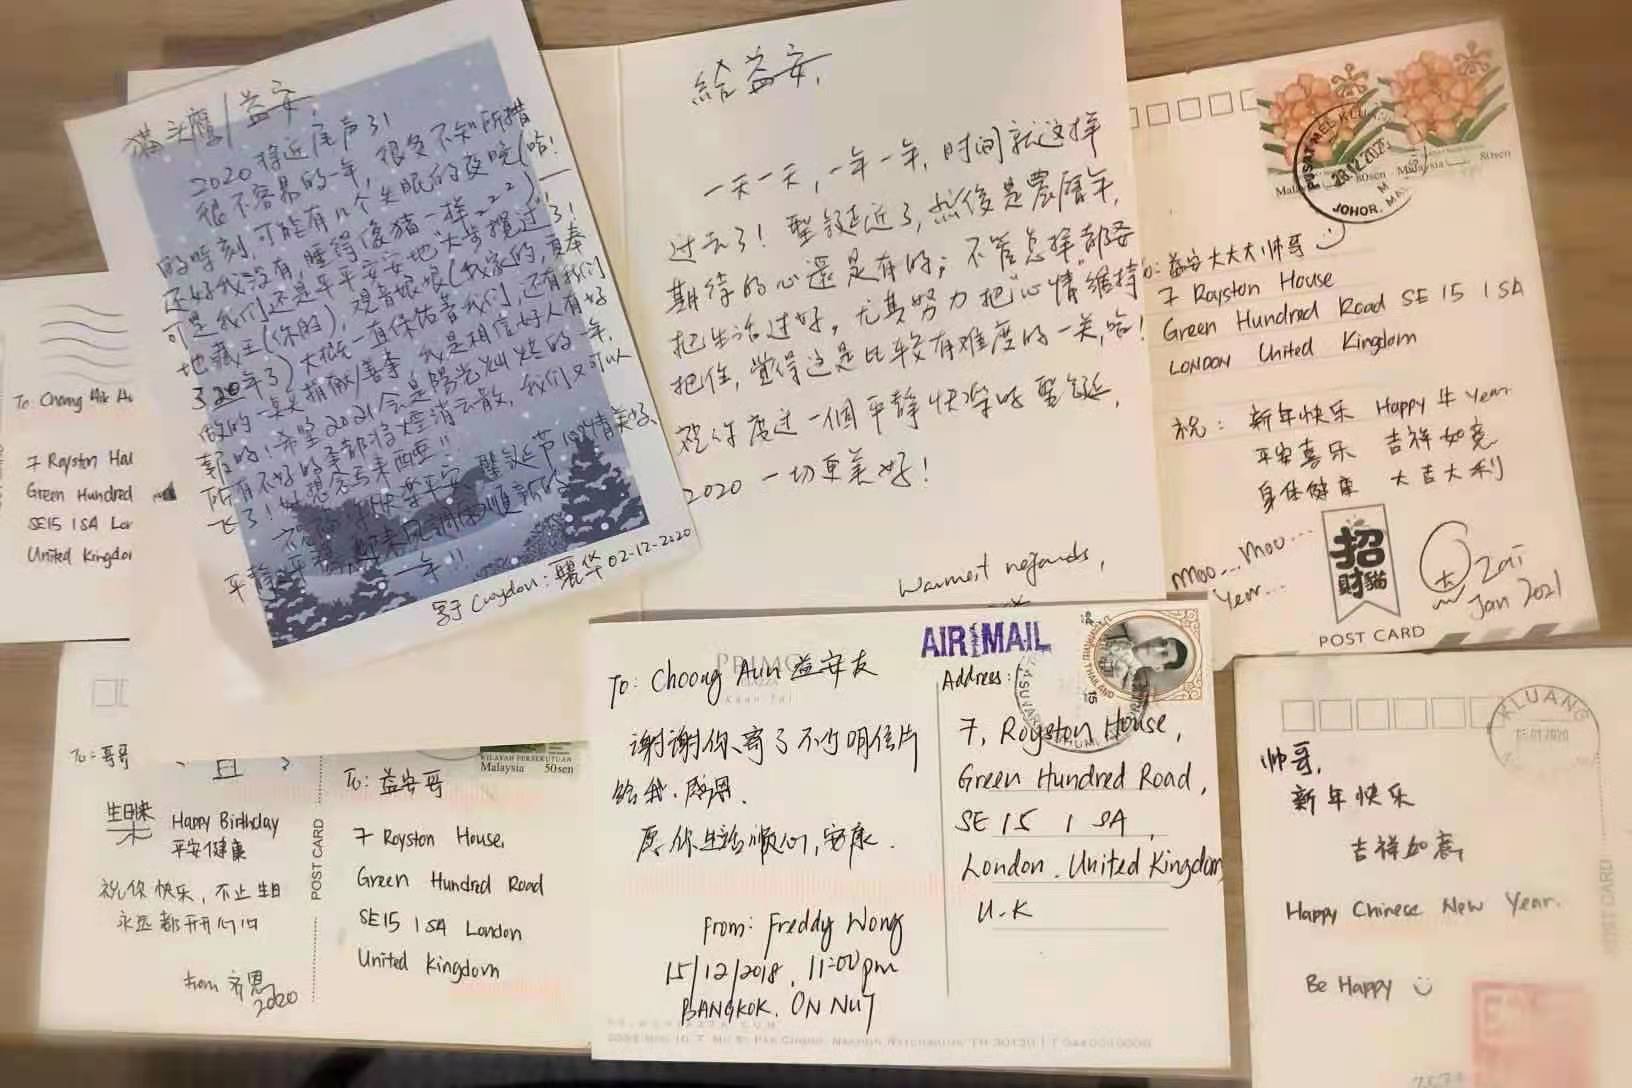 猫头鹰/益安,
2020 接近尾声了!
很不容易的一年,很多不知所措
的時刻,可能有几个失眠的夜晚(哈!
还好我没有,睡得像猪一样 zz²)——
可是我们还是平平安安地"大步攬过"了!
地藏王(你的),观音娘娘(我家的,真奉
3 20年了)大概一直保佑著我们,还有我们
做的一真美捐献/善事,我是相信好人有好
報的!希望2021会是陽光灿烂的一年,
所有不好的事都将煙消云散,我们又可以
飞了!
快樂平安 聖誕节 心情美好、
一年!!
写于 Croydon: 麗华 02-12-2020
給益安,
一天一天,一年一年,时间就这样
过去了! 聖誕近了,然後是農曆年,
期待的心還是有的; 不管怎样都要
把生活过好,尤其努力把"心情"維持
把住,覺得这是比较有难度的一关,哈!
祝你度过一個平静快樂的聖誕,
2020 一切更美好!
Warmest regards,
PUSAT MEL KLUANG
28.12.2020
JOHOR, MA
Malaysia 80sen
Malaysia 80sen
益安大大大帅哥
7 Royston House
Green Hundred Road SE 15 1 SA
LONDON United Kingdom
祝: 新年快乐 Happy 牛 Year
平安喜乐 吉祥如意
身体健康 大吉大利
Moo... Moo...
Year...
招
財貓
Jan 2021
POST CARD
To: Choong
7 Royston
Green Hundred
SE15 1SA
United Kingdom
To: 哥哥
生日快乐
Happy Birthday
平安健康
祝你快乐, 不止生日
永远都开开心心
from 齐恩
2020
POST CARD
WILAYAH PERSEKUTUAN
Malaysia 50sen
To: 益安哥
7 Royston House,
Green Hundred Road
SE15 1SA London
United Kingdom
PRIMO
To: Choong Aun 益安友
谢谢你、寄了不少明信片
给我. 感恩.
愿你生活顺心, 安康.
From: Freddy Wong
15/12/2018, 11:00pm
BANGKOK. ON NUT
AIR MAIL
THAILAND
15
Address:
7, Royston House,
Green Hundred Road,
SE 15 1 SA,
London. United Kingdom
U.K
KLUANG
帅哥,
新年快乐
吉祥如意
Happy Chinese New Year.
Be Happy
POST CARD